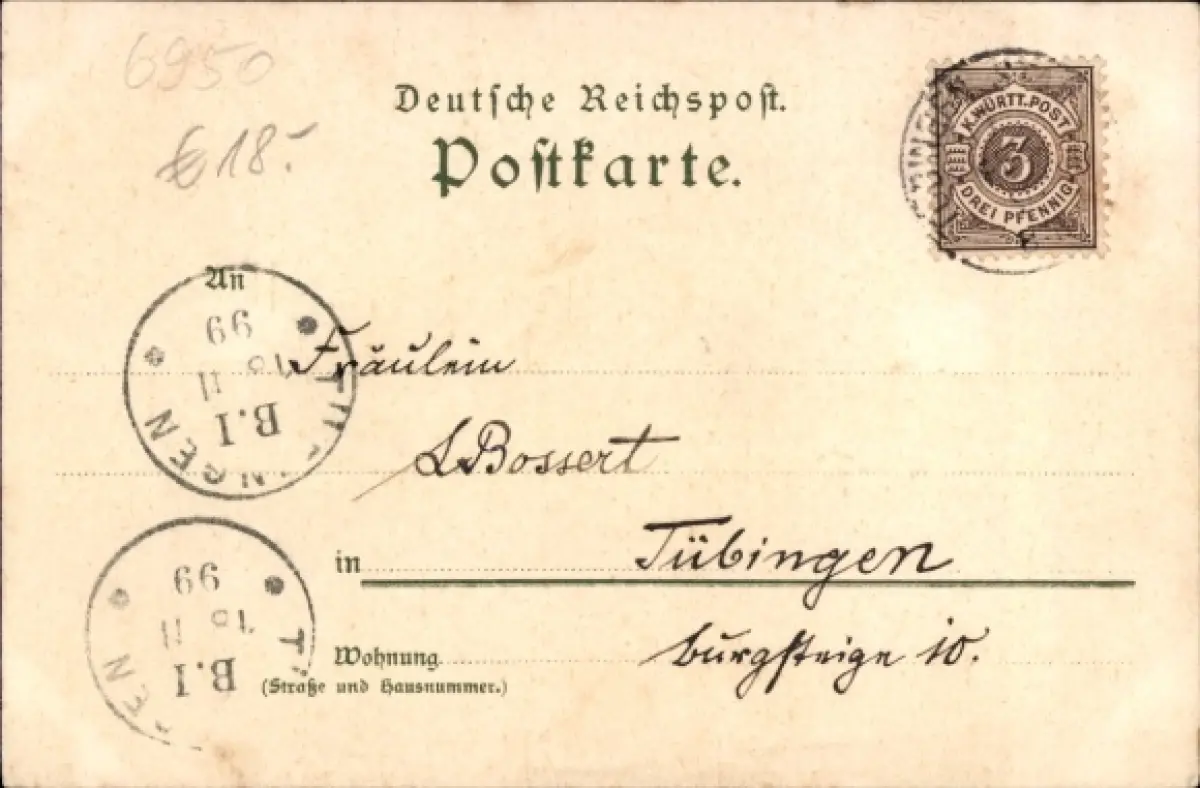 6950
€ 18.-
Deutsche Reichspost.
Postkarte.
K. WÜRTT. POST
3
DREI PFENNIG
An
Fräulein
L Bossert
in Tübingen
Wohnung Burgsteige 10.
(Straße und Hausnummer.)
99
11
B.I
99
11
B.I